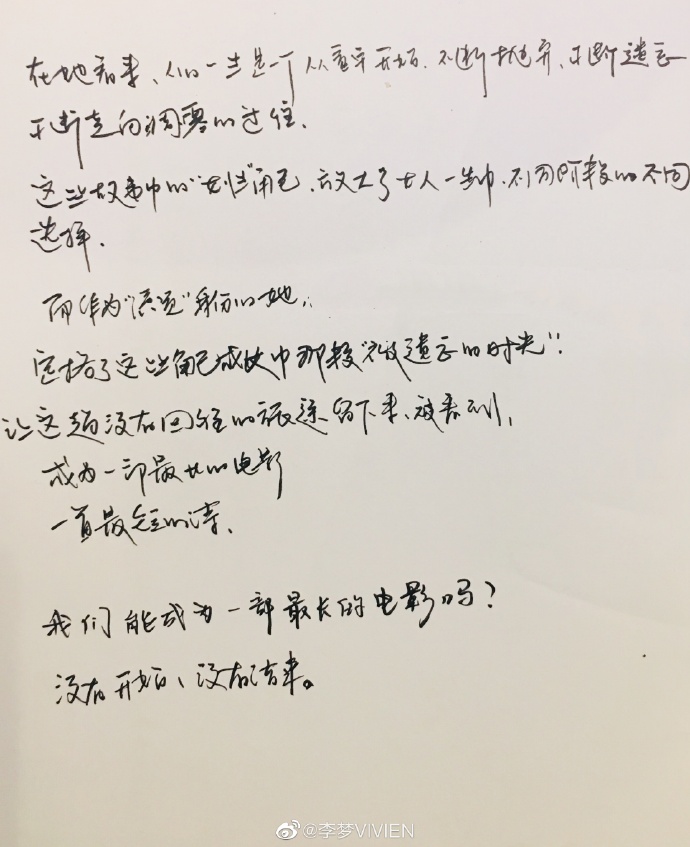 在她看来、人的一生是一个从童年开始、不断抛弃、不断遗忘
不断走向凋零的过程.
这些故事中的“女性”角色、放大了女人一生中、不同阶段的不同
选择.
而作为“演员”身份的她,
包揽了这些角色成长中那段“被遗忘的时光”:
让这趟没有回程的旅途留下来、被看到,
成为一部最长的电影
一首最短的诗.
我们能成为一部最长的电影吗?
没有开始、没有结束。
@李梦VIVIEN